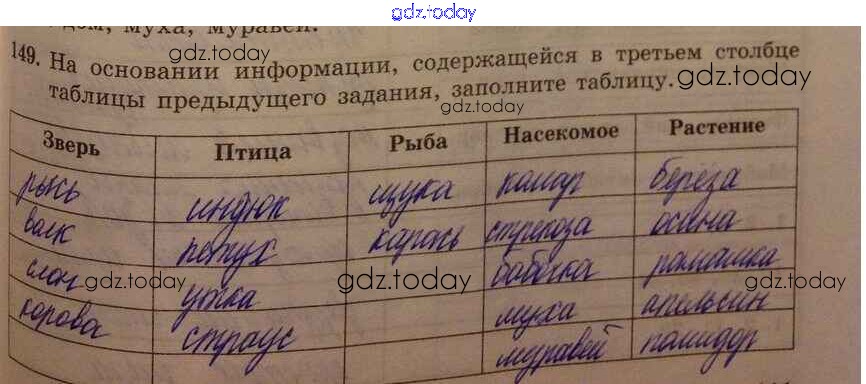 gdz.today
дом, муха, муравей.
149. На основании информации, содержащейся в третьем столбце
gdz.today
таблицы предыдущего задания, заполните таблицу.
gdz.today
gdz.today
Зверь Птица Рыба Насекомое Растение
рысь индюк щука комар берёза
волк петух карась стрекоза осина
слон утка бабочка ромашка
gdz.today
gdz.today
gdz.today
корова страус муха апельсин
муравей помидор